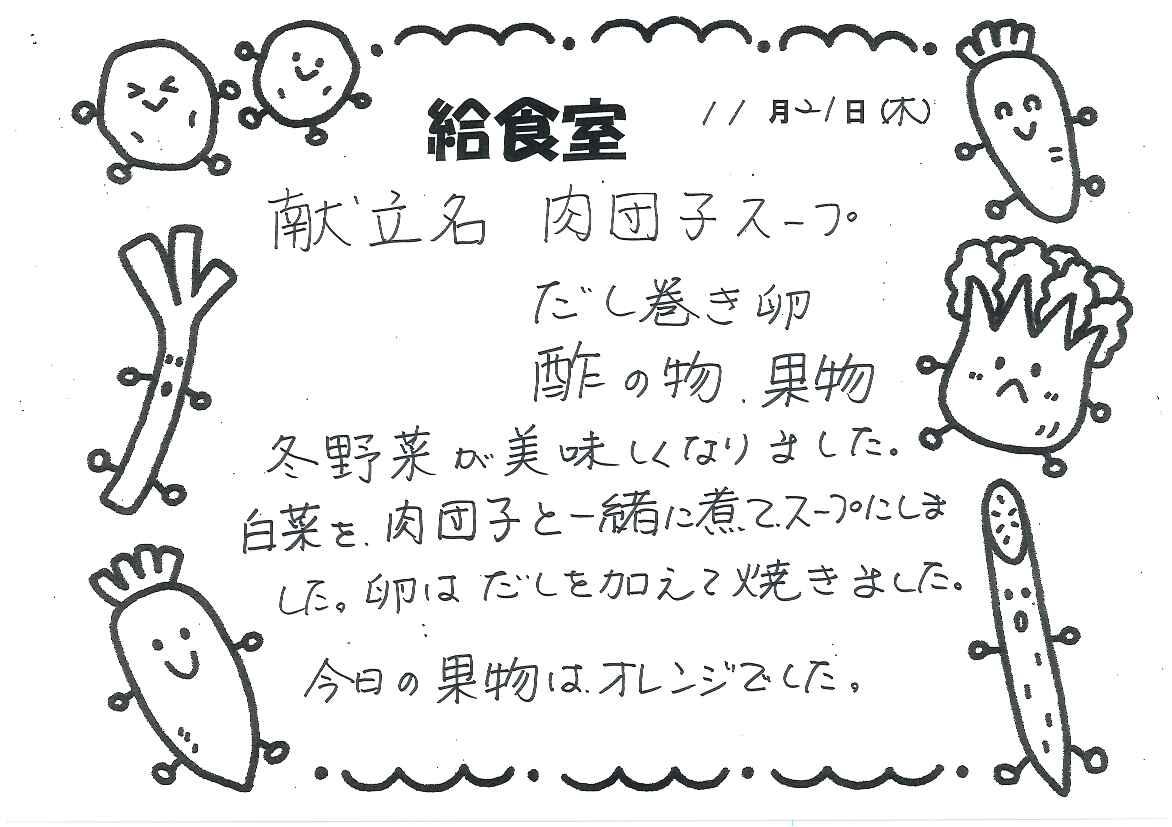 給食室 11月21日(木)
献立名 肉団子スープ
だし巻き卵
酢の物、果物
冬野菜が美味しくなりました。
白菜を、肉団子と一緒に煮て、スープにしま
した。卵はだしを加えて焼きました。
今日の果物は、オレンジでした。